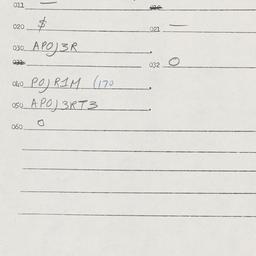 011 —
020 $ 021 —
030 APOJ3R .
031 032 O
040 POJR1M (170 .
050 APOJ3RT3 .
060 O